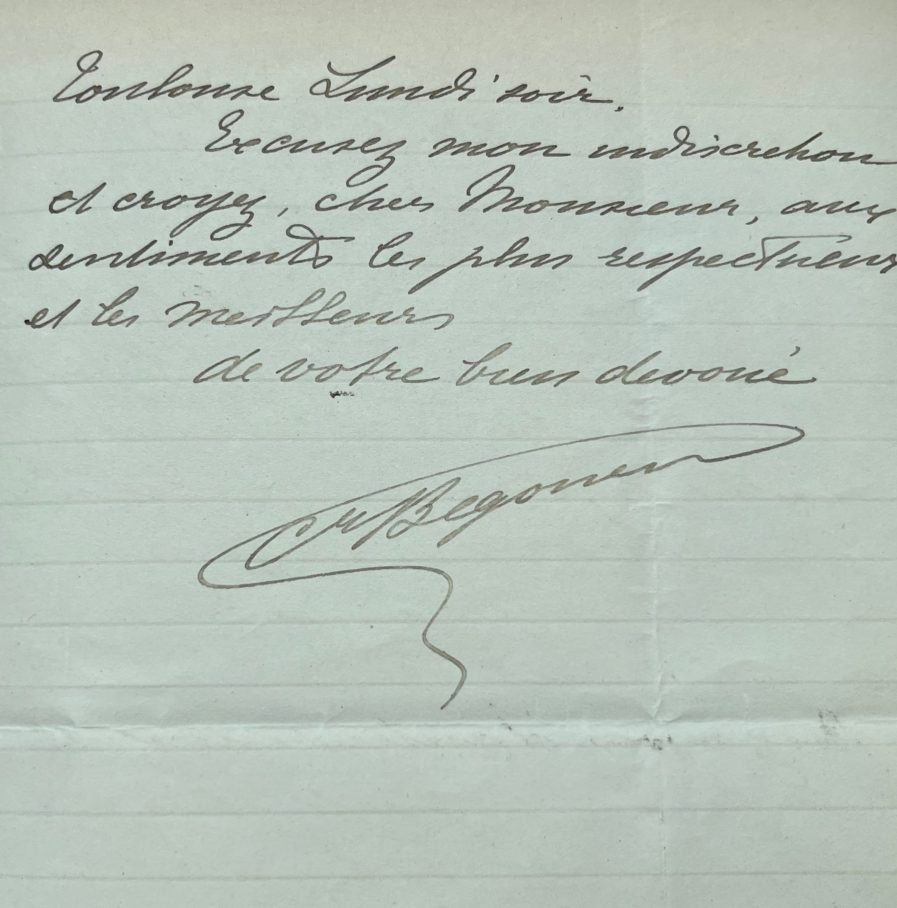 Toulouse Lundi soir.
Excusez mon indiscretion
et croyez, cher Monsieur, aux
sentiments les plus respectueux
et les meilleurs
de votre bien devoué
Begouen